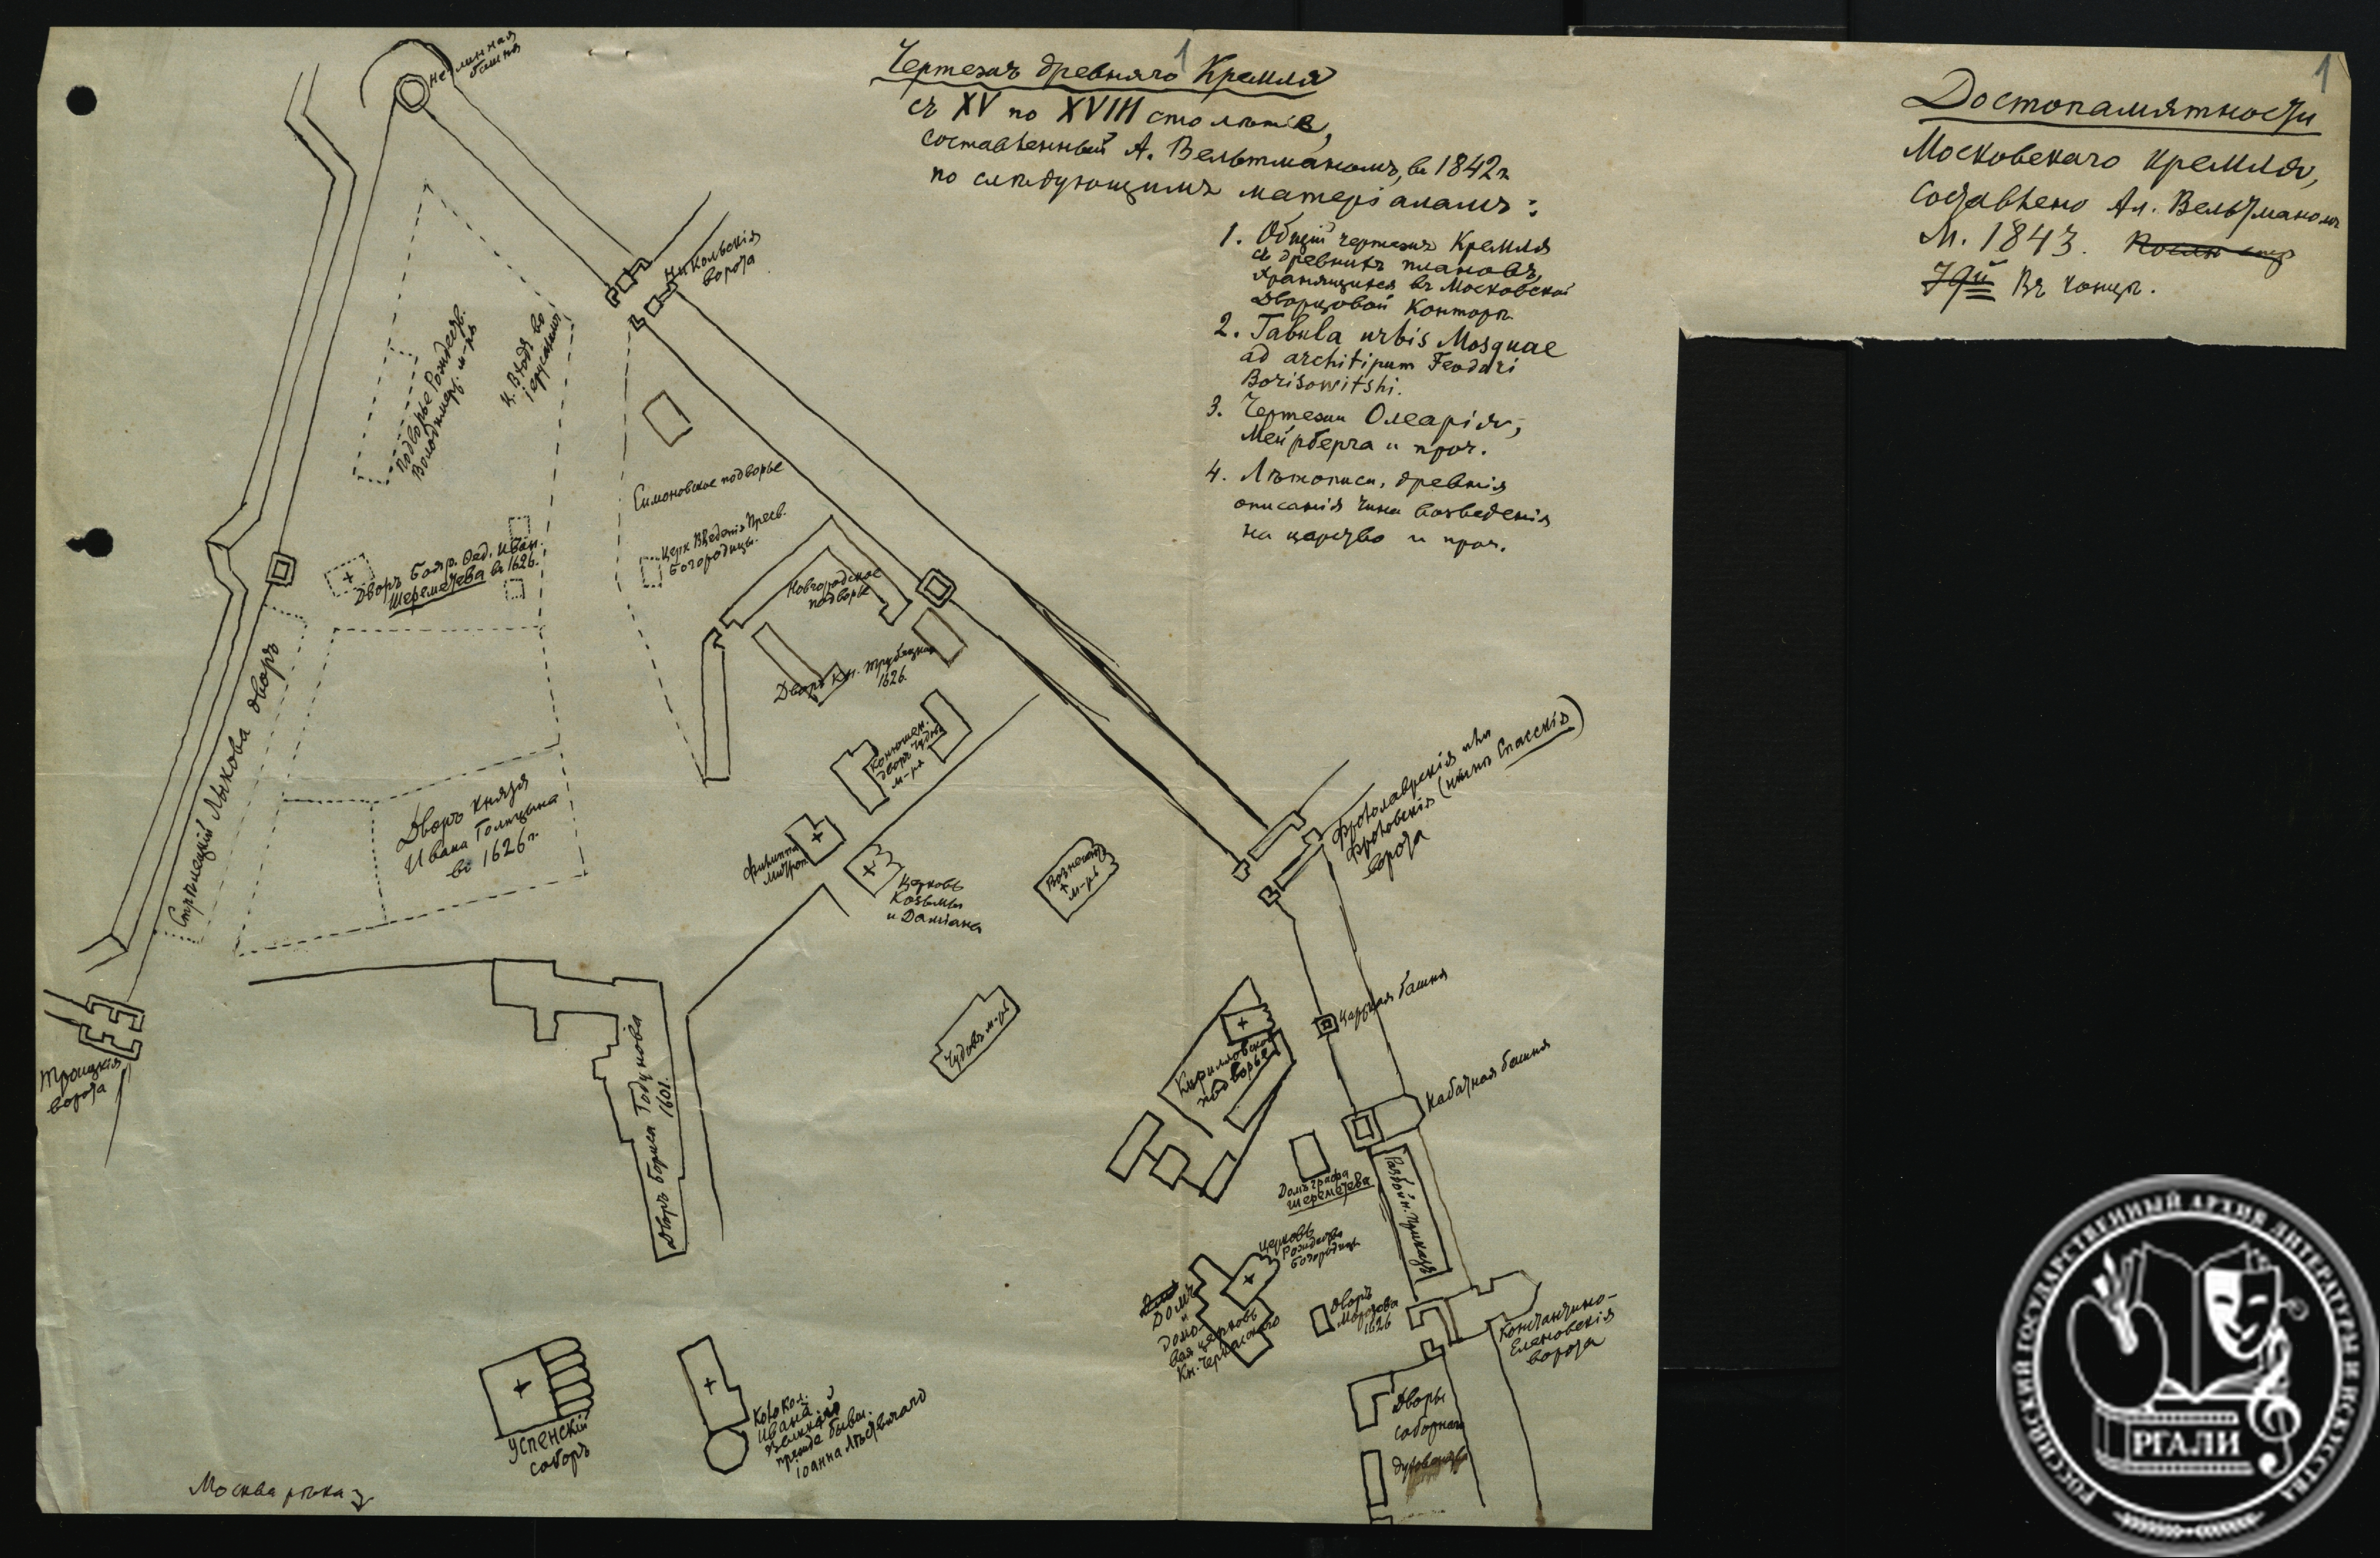 1
Чертежъ древняго Кремля
съ XV по XVIII столѣтіе,
составленный А. Вельтманомъ, въ 1842 г.
по слѣдующимъ матеріаламъ:
1. Общій чертежъ Кремля
съ древнихъ плановъ,
хранящихся въ Московской
Дворцовой Конторѣ.
2. Tabula urbis Mosquae
ad architipum Feodori
Borisowitshi.
3. Чертежи Олеарія,
Мейрберга и проч.
4. Лѣтописи, древнія
описанія чина возведенія
на царство и проч.
1
Достопамятности
Московскаго Кремля,
составлено Ал. Вельтманомъ
М. 1843.
Въ концѣ.
Неглинная
башня
Никольскія
ворота
Подворье Рождеств.
Володимер. м-ря
ц. Входъ во
іерусалимъ
Симоновское подворье
Церк Введенія Пресв.
Богородицы.
Дворъ Бояр. Ѳед. Иван.
Шереметева въ 1626.
Новгородское
подворье
Дворъ Кн. Трубецкаго
1626.
Стрѣлецкій Лыкова дворъ
Дворъ Князя
Ивана Голицына
во 1626 г.
Конюшен.
дворъ Чудова
м-ря
Филиппа
Митроп.
Церковь
Козьмы
и Даміана
Вознесен.
м-рь
Фроловскія (нынѣ Спасскія)
ворота
Чудовъ м-рь
Царская башня
Кирилловское
подворье
Набатная башня
Троицкія
ворота
Дворъ Бориса Годунова
1601.
Домъ графа
Шереметева
Разбойн. Приказъ
Церковь
Рождества
Богородицы
Домъ
и
Домо-
вая церковь
Кн. Черкасскаго
Дворъ
Морозова
1626
Константино-
Еленовскія
ворота
Успенскій
соборъ
Колокол.
Ивана
Великаго
прежде бывш.
Іоанна Лѣствичнаго
Дворы
соборнаго
духовенства
Москва рѣка
РОССИЙСКИЙ ГОСУДАРСТВЕННЫЙ АРХИВ ЛИТЕРАТУРЫ И ИСКУССТВА
РГАЛИ